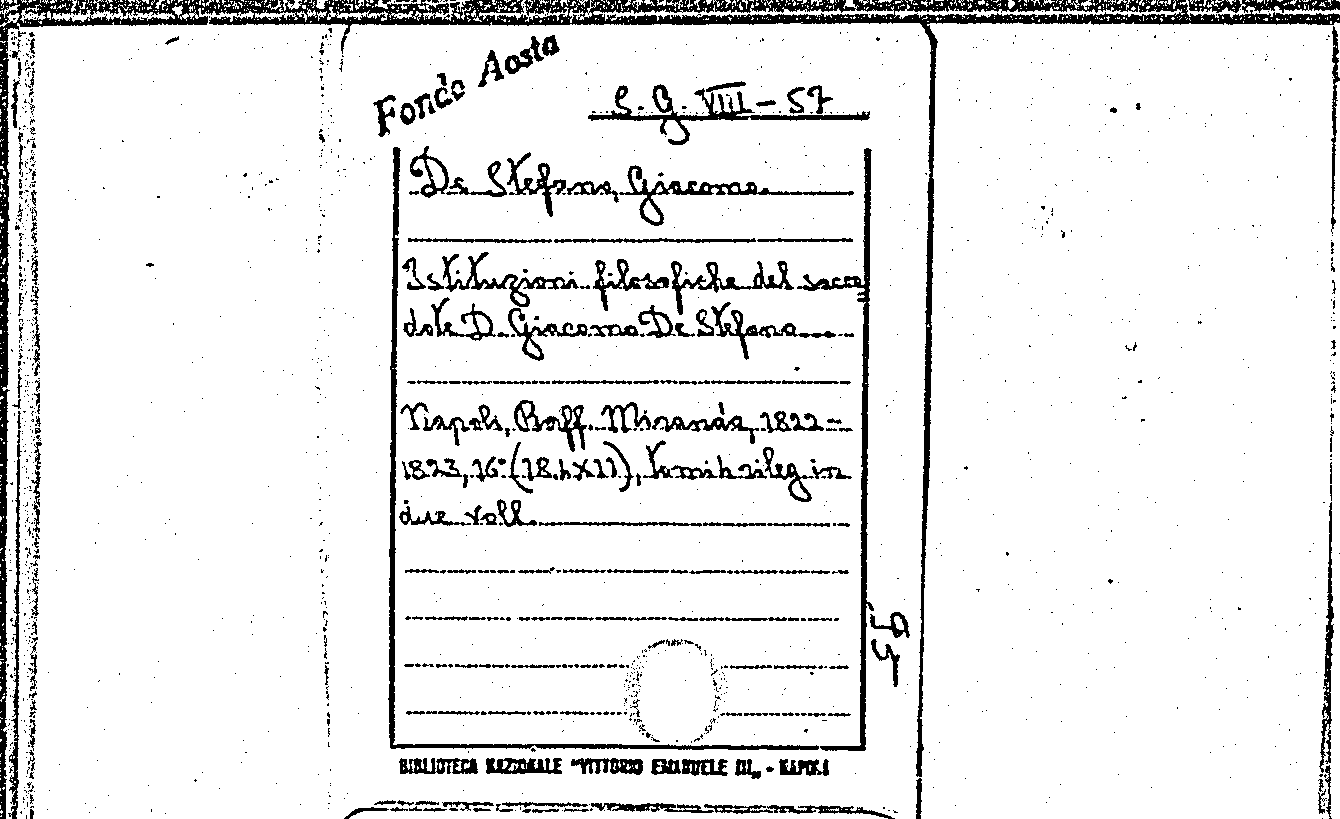 Fondo Aosta
S. G. VIII - 57
De Stefano, Giacomo.
Istituzioni filosofiche del sacer=
dote D. Giacomo De Stefano
Napoli, Raff. Miranda, 1822-
1823, 16° (18.½X11), tomi rileg in
due voll.
BIBLIOTECA NAZIONALE "VITTORIO EMANUELE III„ - NAPOLI